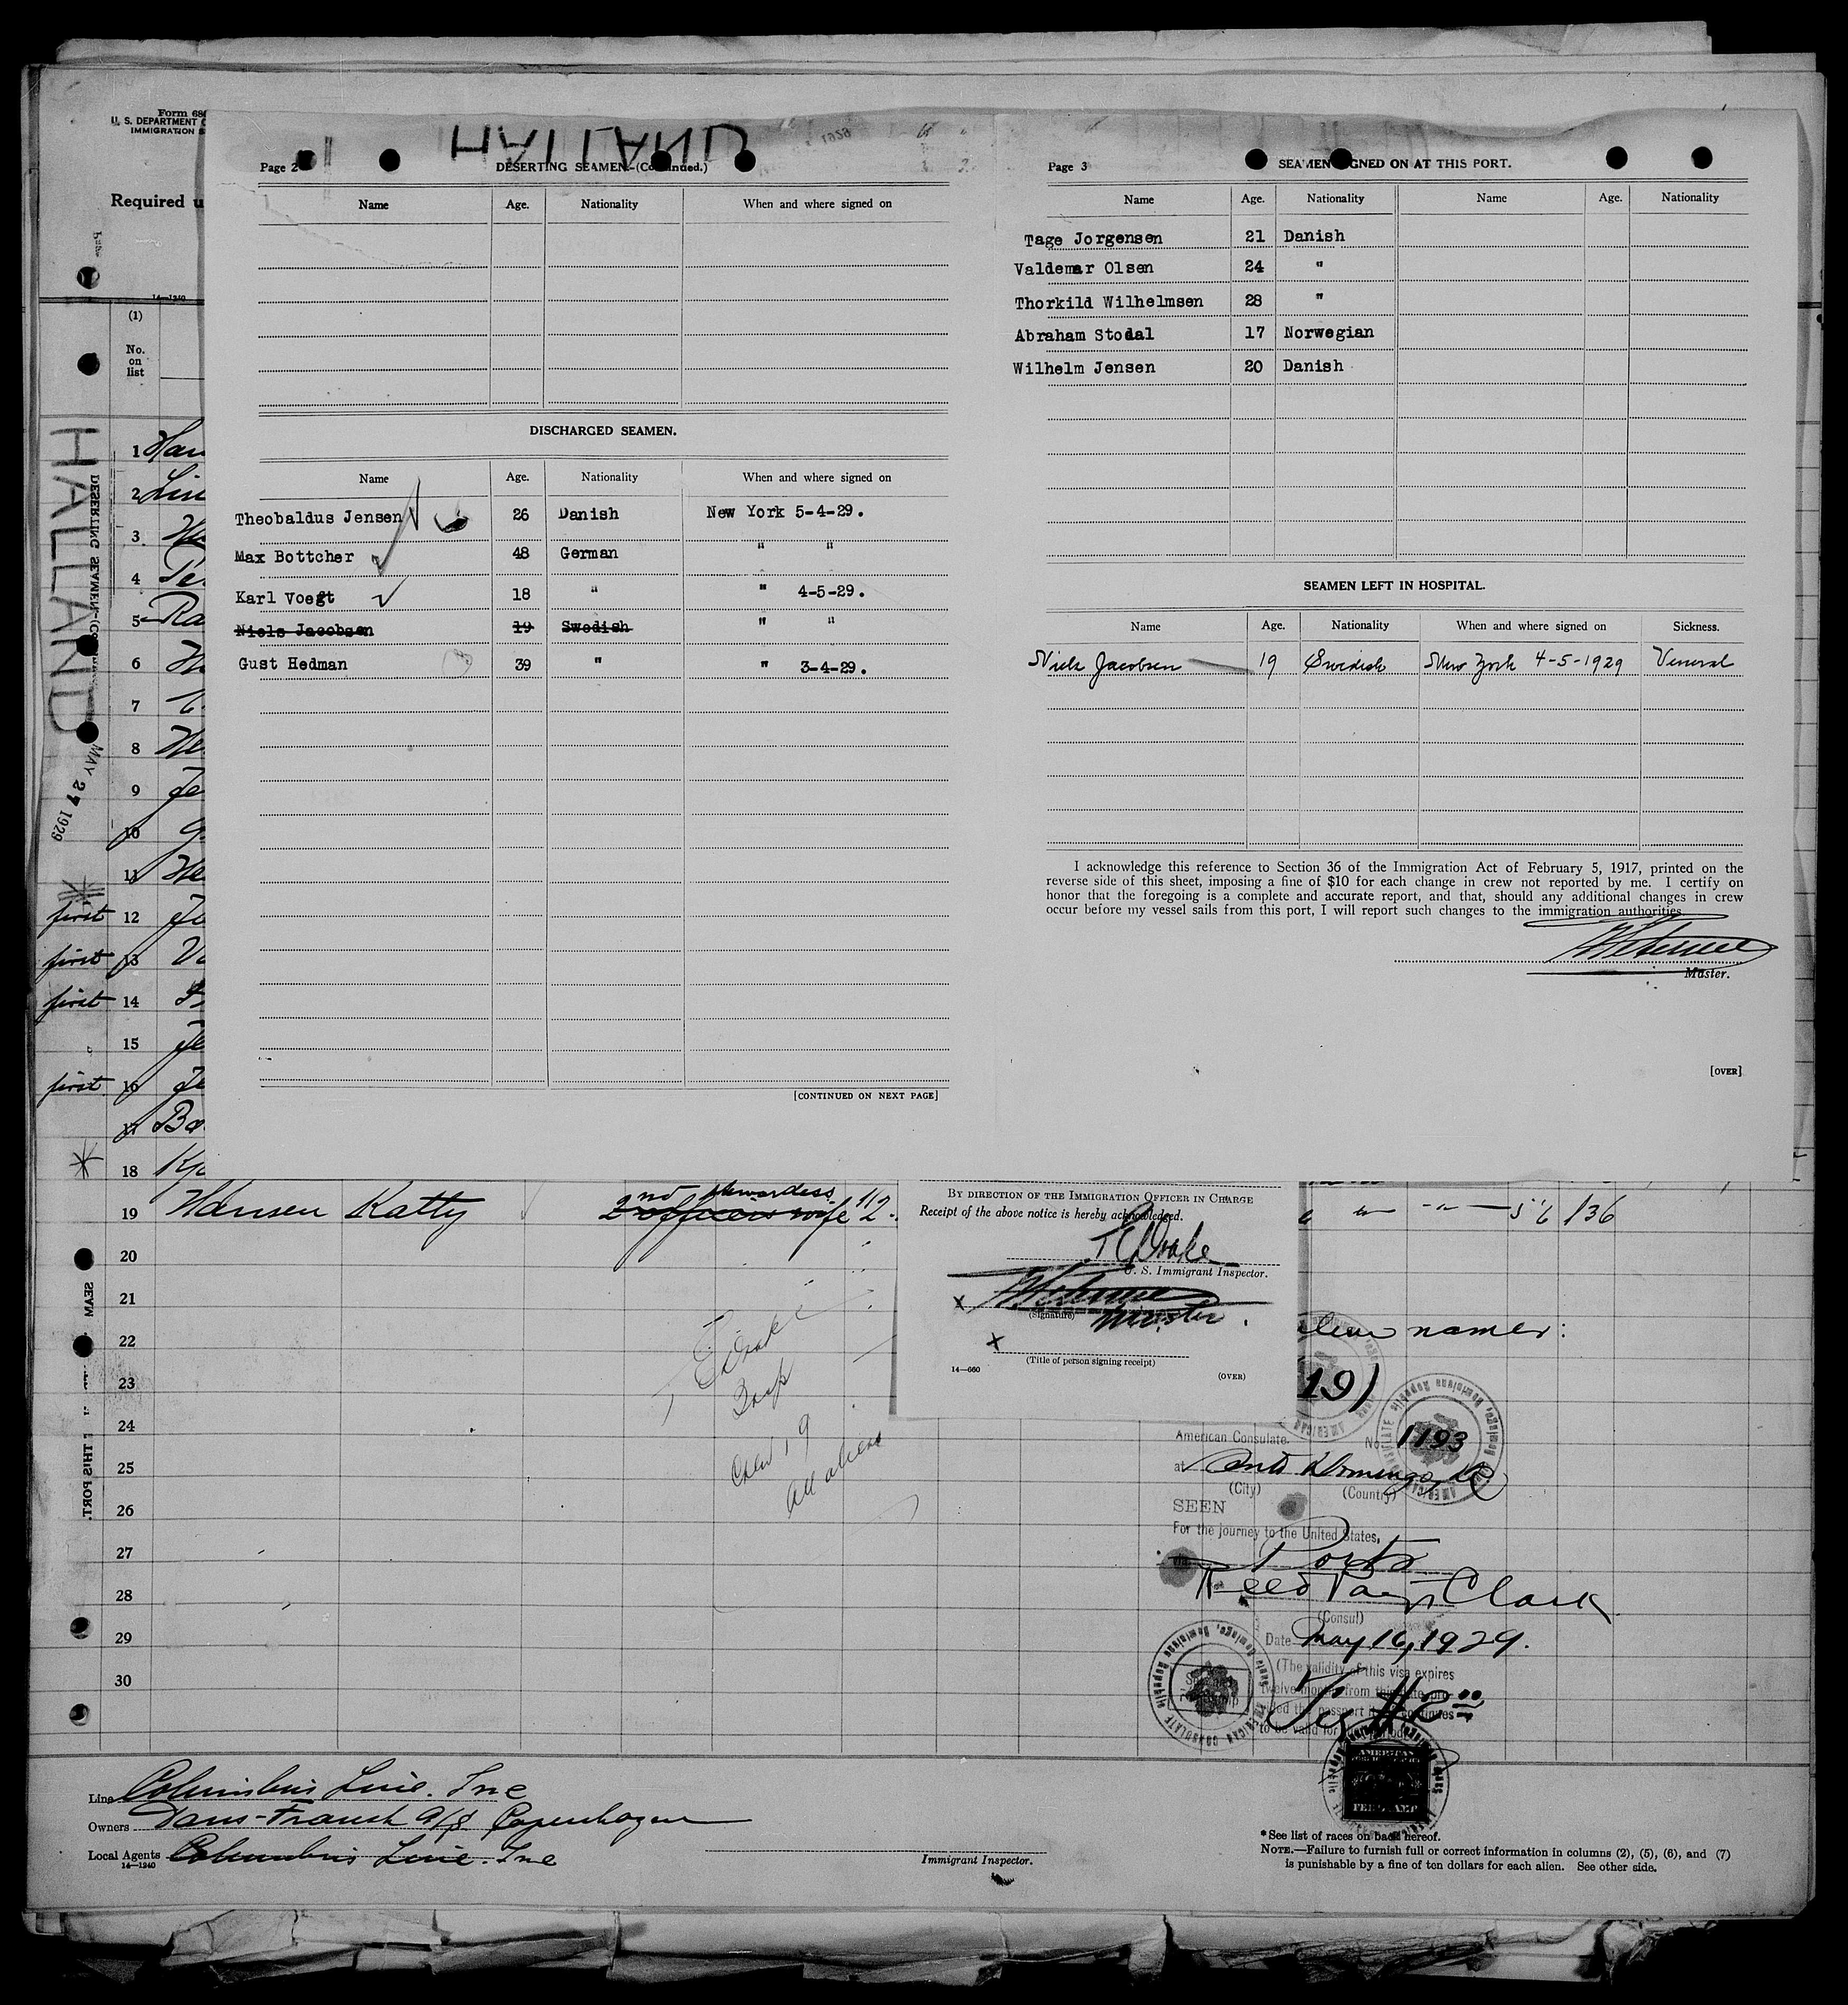 Form 68
U. S. DEPARTMENT
IMMIGRATION S
Required u
14—1240
(1)
No.
on
list
HALLAND
DESERTING SEAMEN
MAY 27 1929
1 Han
2 Lin
3
4 Pe
5 Ra
6
7
8 He
9 Je
10
11 He
first 12
first 13
first 14
15 Je
first 16 Je
17 Ba
18
HALLAND
1929
Page 2
DESERTING SEAMEN—(Continued.)
Name Age. Nationality When and where signed on
DISCHARGED SEAMEN.
Name Age. Nationality When and where signed on
Theobaldus Jensen 26 Danish New York 5-4-29.
Max Bottcher 48 German " "
Karl Voegt 18 " " 4-5-29.
Niels Jacobsen 19 Swedish " "
Gust Hedman 39 " " 3-4-29.
[CONTINUED ON NEXT PAGE]
Page 3
SEAMEN SIGNED ON AT THIS PORT.
Name Age. Nationality Name Age. Nationality
Tage Jorgensen 21 Danish
Valdemar Olsen 24 "
Thorkild Wilhelmsen 28 "
Abraham Stodal 17 Norwegian
Wilhelm Jensen 20 Danish
SEAMEN LEFT IN HOSPITAL.
Name Age. Nationality When and where signed on Sickness.
Niels Jacobsen 19 Swedish New York 4-5-1929 Veneral
I acknowledge this reference to Section 36 of the Immigration Act of February 5, 1917, printed on the
reverse side of this sheet, imposing a fine of $10 for each change in crew not reported by me. I certify on
honor that the foregoing is a complete and accurate report, and that, should any additional changes in crew
occur before my vessel sails from this port, I will report such changes to the immigration authorities.
Master.
[OVER]
19 Hansen Katty 2nd stewardess officers wife 1/2 5'6 136
20
21
22
23
24
25
26
27
28
29
30
SEAM
THIS PORT.
Drake
Insp
Crew 19
All aliens
BY DIRECTION OF THE IMMIGRATION OFFICER IN CHARGE
Receipt of the above notice is hereby acknowledged.
Drake
U. S. Immigrant Inspector.
X
(Signature) Master.
X
(Title of person signing receipt)
14—660
(OVER)
names:
19)
American Consulate. No. 1193
at Santo Domingo, DR
(City) (Country)
SEEN
For the journey to the United States,
via Ports
Reed Paige Clark
(Consul)
Date May 16, 1929.
(The validity of this visa expires
twelve months from this date pro-
vided the passport itself continues
to be valid for that period)
Fee $2.00
AMERICAN CONSULATE Santo Domingo, Dominican Republic
AMERICAN
FEE STAMP
Line Columbus Line. Inc
Owners Dans-Fransk A/S Copenhagen
Local Agents Columbus Line. Inc
14—1240
Immigrant Inspector.
*See list of races on back hereof.
NOTE.—Failure to furnish full or correct information in columns (2), (5), (6), and (7)
is punishable by a fine of ten dollars for each alien. See other side.